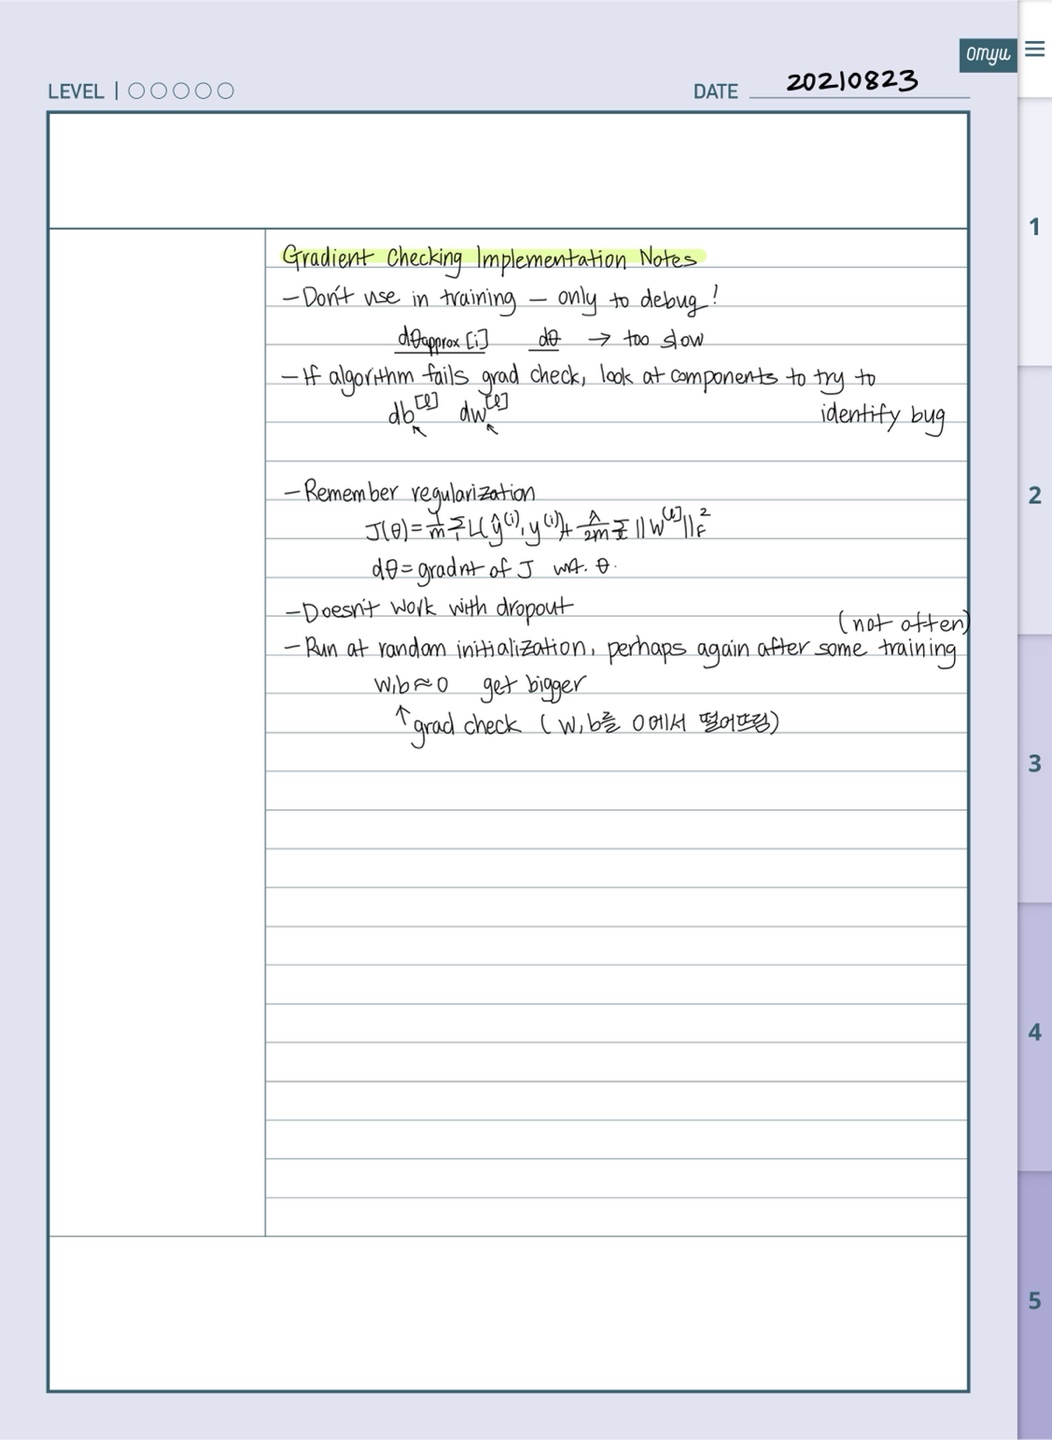 omyu
LEVEL | ○○○○○
DATE 20210823
Gradient Checking Implementation Notes
- Don't use in training - only to debug!
dθapprox[i] dθ → too slow
- If algorithm fails grad check, look at components to try to
identify bug
db^[l] dw^[l]
- Remember regularization
J(θ) = 1/m Σ_i L(ŷ^(i), y^(i)) + λ/2m Σ_l ||W^[l]||_F^2
dθ = gradnt of J wrt. θ.
- Doesn't work with dropout
(not often)
- Run at random initialization, perhaps again after some training
w,b≈0 get bigger
↑ grad check (w,b를 0에서 떨어뜨림)
1
2
3
4
5